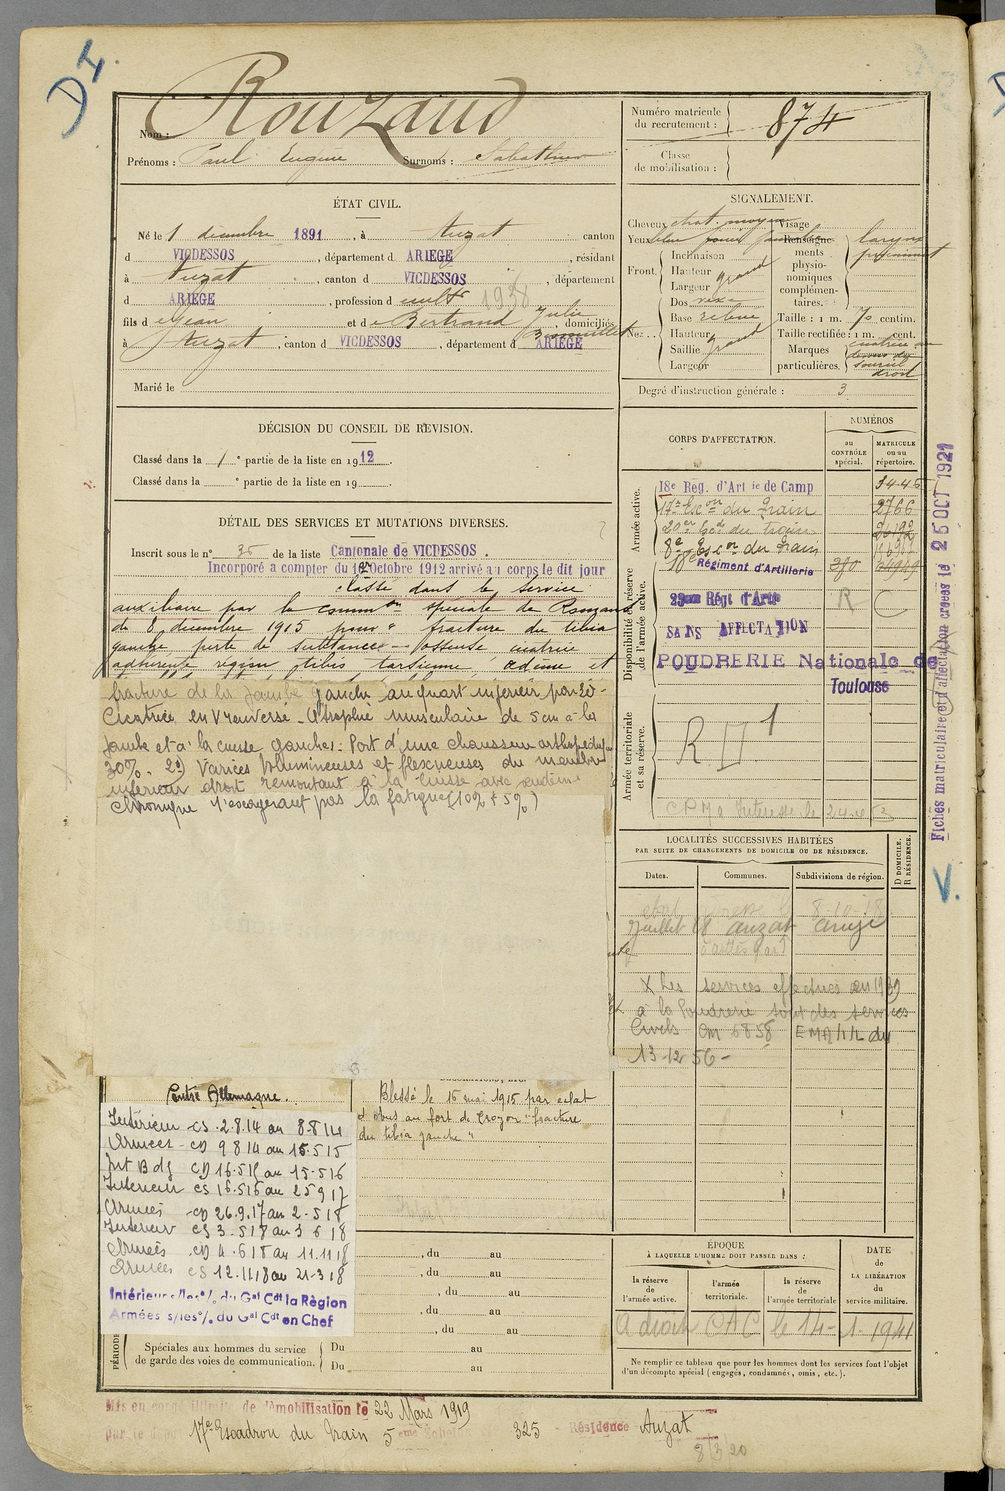 D I.
Nom : Rouzaud
Prénoms : Paul Eugène Surnoms : Sabathier
Numéro matricule
du recrutement : 874
Classe
de mobilisation :
ÉTAT CIVIL.
Né le 1 décembre 1891, à Auzat canton
d VICDESSOS, département d ARIEGE, résidant
à Auzat, canton d VICDESSOS, département
d ARIEGE, profession d cultr 1938
fils de Jean et de Bertrand Julie, domiciliés
à Auzat, canton d VICDESSOS, département d ARIEGE
Marié le
SIGNALEMENT.
Cheveux chat. moyen Visage
Yeux bleu Renseigne-
ments
physio-
nomiques
complémen-
taires.
Front. Inclinaison
Hauteur grand
Largeur
Nez... Dos vexe
Base relevé Taille : 1 m. 70 centim.
Hauteur grand Taille rectifiée : 1 m. cent.
Saillie Marques
Largeur particulières.
sourcil
droit
Degré d'instruction générale : 3
DÉCISION DU CONSEIL DE RÉVISION.
Classé dans la 1e partie de la liste en 1912.
Classé dans la e partie de la liste en 19
DÉTAIL DES SERVICES ET MUTATIONS DIVERSES.
Inscrit sous le n° 35 de la liste Cantonale de VICDESSOS.
Incorporé a compter du 10 Octobre 1912 arrivé au corps le dit jour
classé dans le service
auxiliaire par la common spéciale de
du 8 décembre 1915 pour " fracture du tibia
gauche perte de substance - vicatrice
adhérente région tibio tarsienne, œdème et
fracture de la jambe gauche au quart inférieur par
Cicatrice en V renversé - Atrophie musculaire de 5 cm à la
jambe et à la cuisse gauches. Port d'une chaussure orthopédique
30%. 2°) Varices volumineuses et flexueuses du membre
inférieur droit remontant à la cuisse avec œdème
chronique n'exagérant pas la fatigue (10% + 5%)
CORPS D'AFFECTATION.
NUMÉROS
au
CONTRÔLE
spécial.
MATRICULE
ou au
répertoire.
Armée active.
18e Rég. d'Artie de Camp 3445
17e Escon du Train 2766
20e Esc du train
8e Escon du train
Disponibilité et réserve
de l'armée active.
18e Régiment d'Artillerie
23eme Régt d'Artie R C
SANS AFFECTATION
POUDRERIE Nationale de
Toulouse
Armée territoriale
et sa réserve.
R II 1
Fiches matriculaire et d'affectation créées le 25 OCT 1921
V.
LOCALITÉS SUCCESSIVES HABITÉES
PAR SUITE DE CHANGEMENTS DE DOMICILE OU DE RÉSIDENCE.
Dates. Communes. Subdivisions de région. D DOMICILE. R RÉSIDENCE.
8-10-18
juillet 28 Auzat Ariège
X Les services effectués en 1939
à la Poudrerie sont des services
Civils - CM 6858 EMA/1/L du
13-12-56 -
Contre Allemagne.
Intérieur CS 2.8.14 au 8.8.14
Armées CD 9.8.14 au 15.5.15
Int Bdg CD 16.5.15 au 15.5.16
Intérieur CS 16.5.16 au 25.9.17
Armées CD 26.9.17 au 2.5.18
Intérieur CS 3.5.18 au 3.6.18
Armées CD 4.6.18 au 11.11.18
Armées CS 12.11.18 au 21.3.18
Intérieur s/les°/. du Gal Cdt la Région
Armées s/les°/. du Gal Cdt en Chef
Blessé le 15 mai 1915 par éclat
d'obus au fort de Troyon "fracture
du tibia gauche"
, du au
, du au
, du au
, du au
, du au
PÉRIODE
Spéciales aux hommes du service
de garde des voies de communication.
Du au
Du au
ÉPOQUE
À LAQUELLE L'HOMME DOIT PASSER DANS :
la réserve
de
l'armée active.
l'armée
territoriale.
la réserve
de
l'armée territoriale
DATE
de
LA LIBÉRATION
du
service militaire.
A droit CAC le 14-1-1941
Ne remplir ce tableau que pour les hommes dont les services font l'objet
d'un décompte spécial (engagés, condamnés, omis, etc.).
Mis en congé illimité de démobilisation le 22 Mars 1919
par le 17e Escadron du Train 5eme Echelon 325 - Résidence Auzat
8/3/20